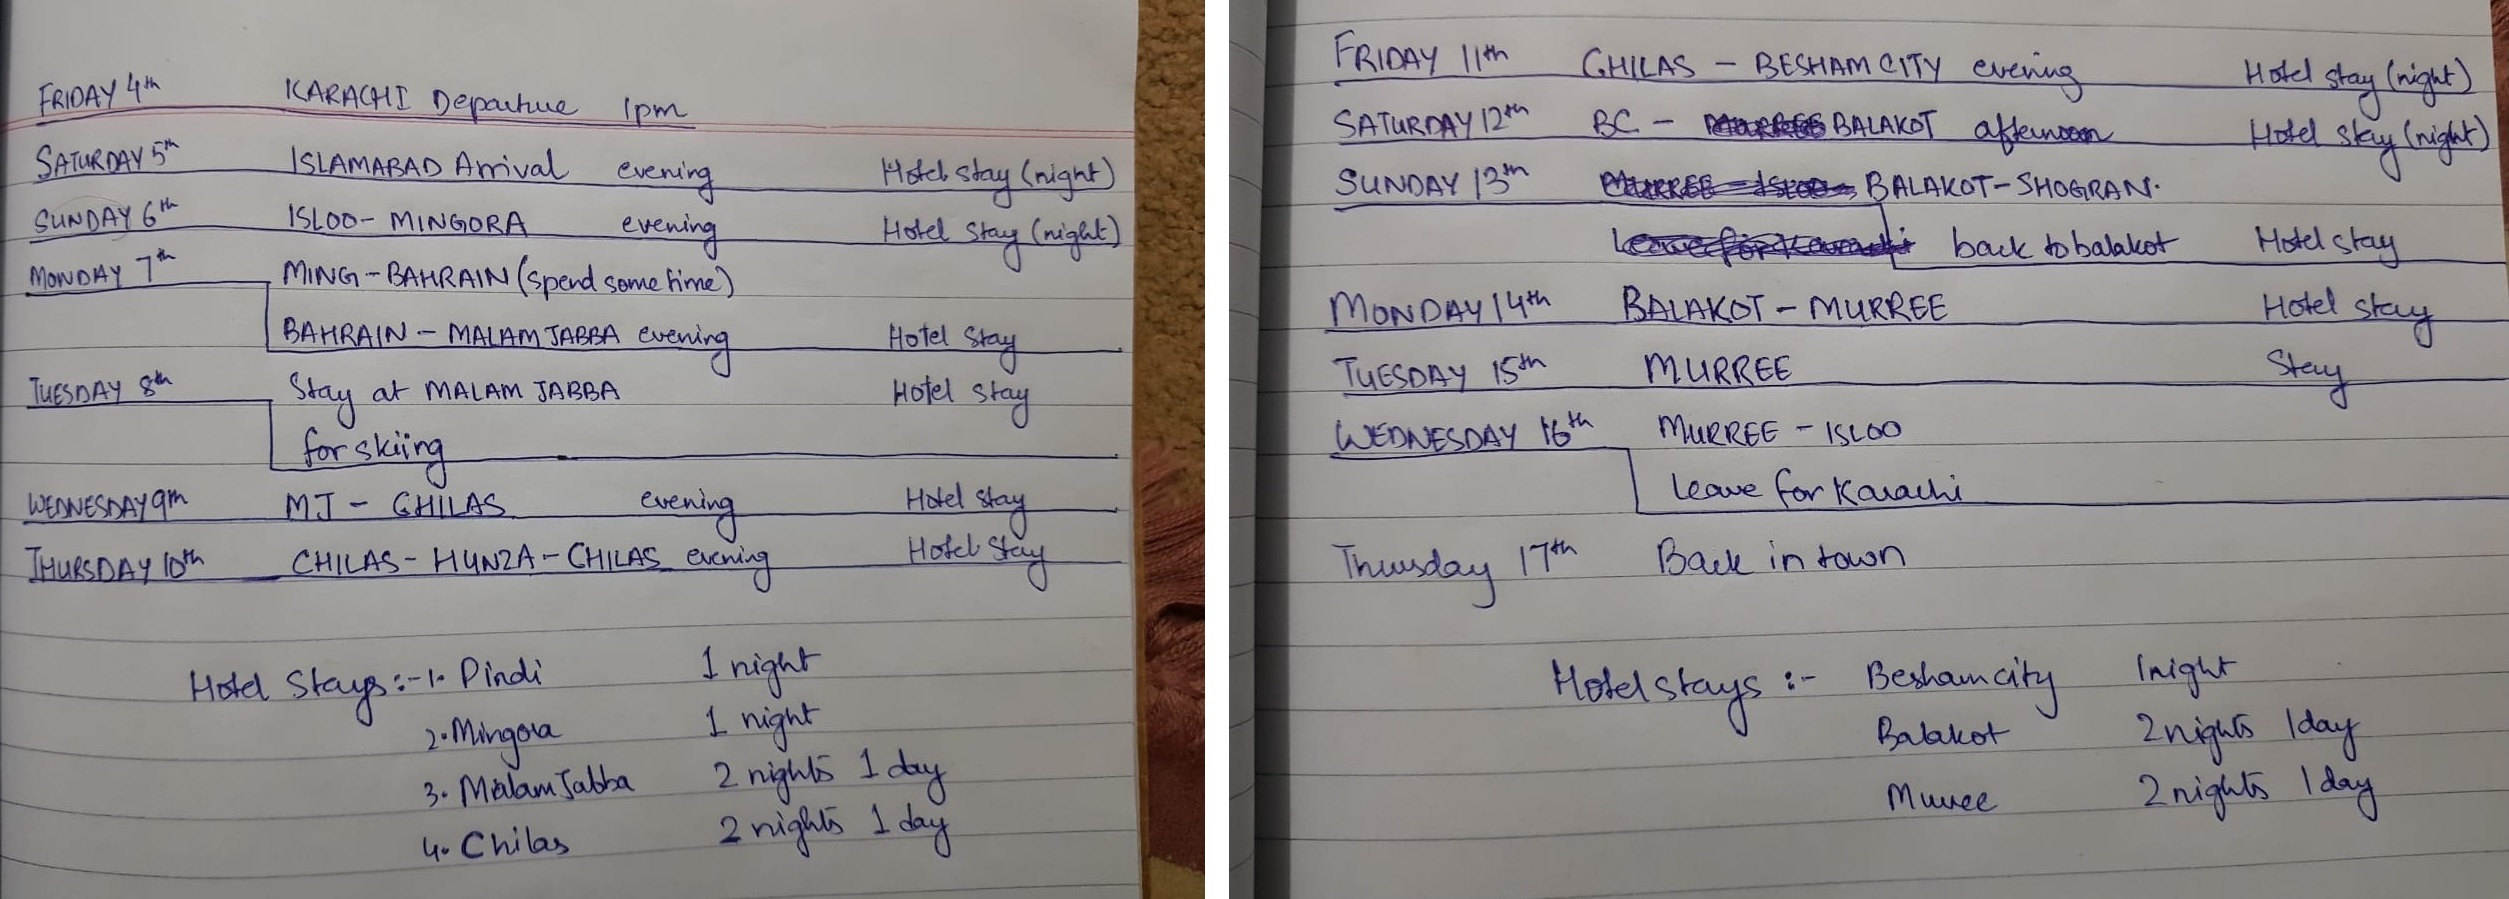 FRIDAY 4th KARACHI Departure 1pm
SATURDAY 5th ISLAMABAD Arrival evening Hotel stay (night)
SUNDAY 6th ISLOO - MINGORA evening Hotel stay (night)
MONDAY 7th MING - BAHRAIN (spend some time)
BAHRAIN - MALAM JABBA evening Hotel stay
TUESDAY 8th Stay at MALAM JABBA Hotel stay
for skiing
WEDNESDAY 9th MJ - CHILAS evening Hotel stay
THURSDAY 10th CHILAS - HUNZA - CHILAS evening Hotel stay
Hotel Stays :- 1. Pindi 1 night
2. Mingora 1 night
3. Malam Jabba 2 nights 1 day
4. Chilas 2 nights 1 day
FRIDAY 11th CHILAS - BESHAM CITY evening Hotel stay (night)
SATURDAY 12th BC - MURREE BALAKOT afternoon Hotel stay (night)
SUNDAY 13th MURREE - ISLOO BALAKOT - SHOGRAN.
Leave for Karachi back to balakot Hotel stay
MONDAY 14th BALAKOT - MURREE Hotel stay
TUESDAY 15th MURREE Stay
WEDNESDAY 16th MURREE - ISLOO
Leave for Karachi
Thursday 17th Back in town
Hotel stays :- Besham city 1 night
Balakot 2 nights 1 day
Murree 2 nights 1 day